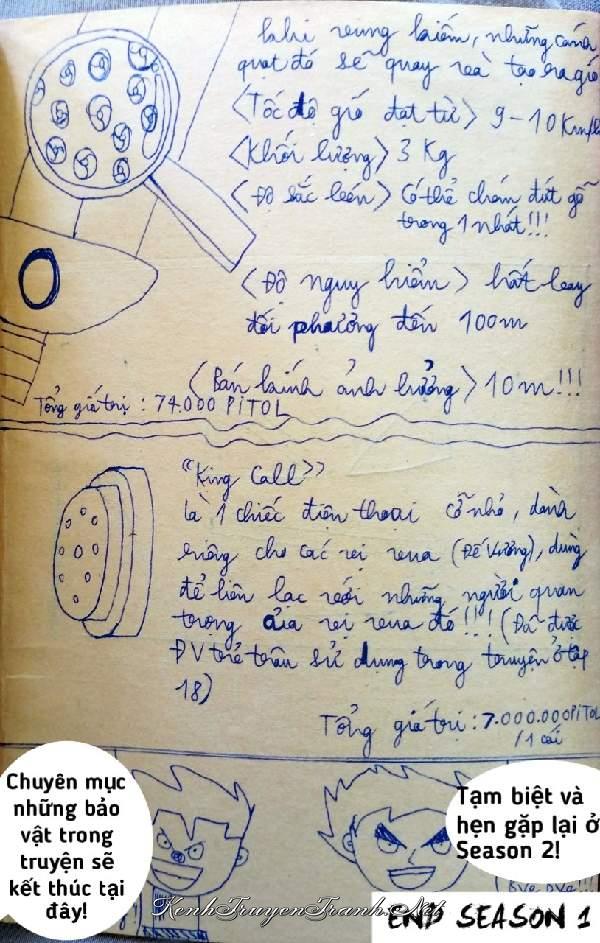 khi vung kiếm, những cánh
quạt đó sẽ quay và tạo ra gió
<Tốc độ gió đạt từ> 9-10 Km/h
<Khối lượng> 3 Kg
<Độ sắc bén> Có thể chém đứt gỗ
trong 1 nhát!!!
<Độ nguy hiểm> hất bay
đối phương đến 100m
<Bán kính ảnh hưởng> 10m!!!
Tổng giá trị : 74.000 PITOL
"King Call>>
là 1 chiếc điện thoại cỡ nhỏ, dành
riêng cho các vị vua (Đế Vương), dùng
để liên lạc với những người quan
trọng của vị vua đó!!! (Đã được
ĐV trẻ trâu sử dụng trong truyện ở tập
18)
Tổng giá trị : 7.000.000 PITOL
/1 cái
Chuyên mục
những bảo
vật trong
truyện sẽ
kết thúc tại
đây!
Tạm biệt và
hẹn gặp lại ở
Season 2!
Bye Bye!!!
KenhTruyenTranh.Net
END SEASON 1